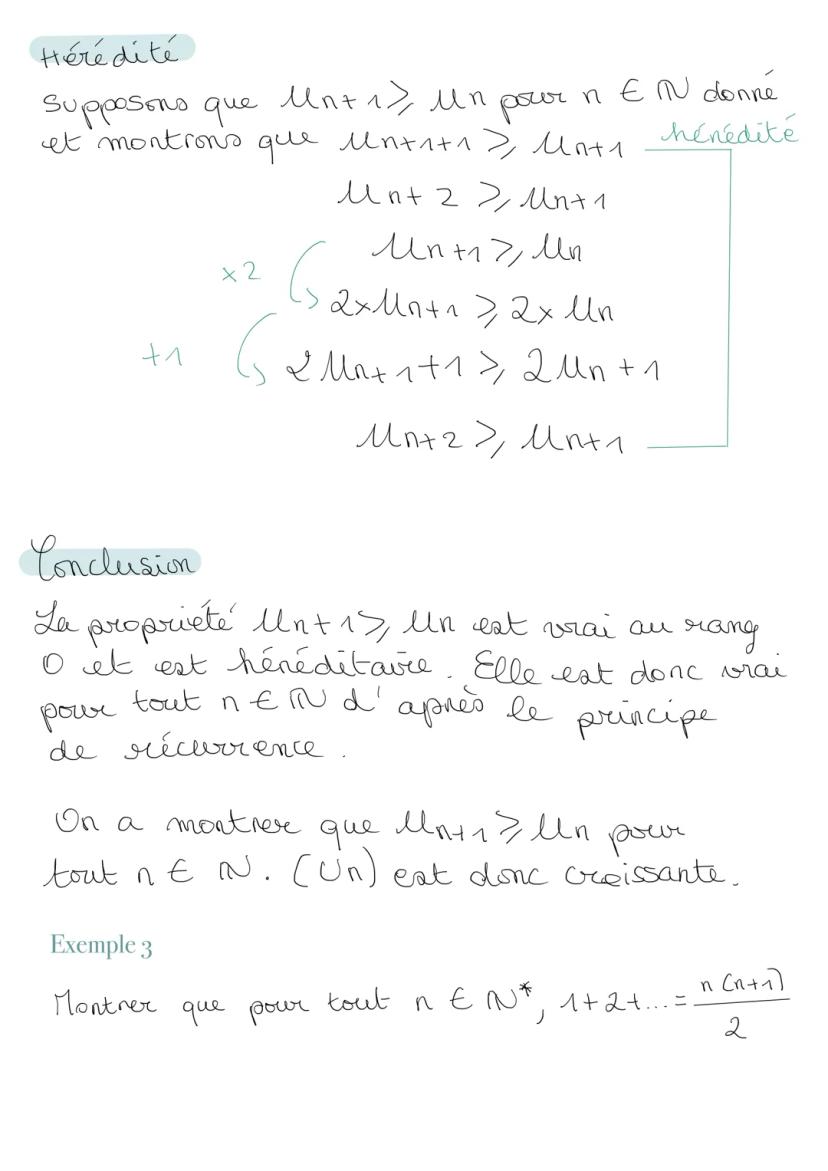 Hérédité
Supposons que Un+1 ⩾ Un pour n ∈ ℕ donné
et montrons que Un+1+1 ⩾ Un+1 hérédité
Un+2 ⩾ Un+1
Un+1 ⩾ Un
×2
2×Un+1 ⩾ 2×Un
+1
2Un+1+1 ⩾ 2Un+1
Un+2 ⩾ Un+1
Conclusion
La propriété Un+1 ⩾ Un est vrai au rang
0 et est héréditaire. Elle est donc vrai
pour tout n ∈ ℕ d'après le principe
de récurrence.
On a montrer que Un+1 ⩾ Un pour
tout n ∈ ℕ. (Un) est donc croissante.
Exemple 3
Montrer que pour tout n ∈ ℕ*, 1+2+...= n(n+1)/2